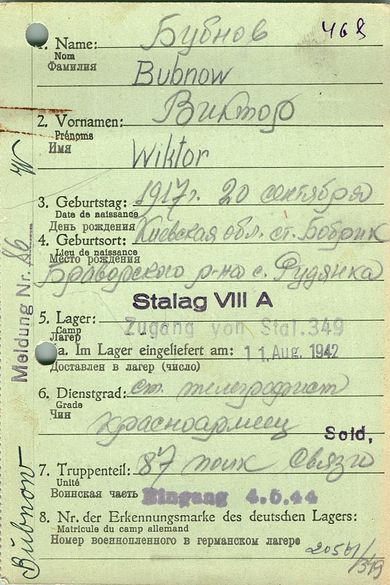 468
1. Name: Бубнов
Nom
Фамилия
Bubnow
2. Vornamen: Виктор
Prénoms
Имя
Wiktor
3. Geburtstag: 1917 г. 20 сентября
Date de naissance
День рождения
4. Geburtsort: Киевская обл. ст. Бобрик
Lieu de naissance
Место рождения
Браворского р-на с. Рудянка
Stalag VIII A
5. Lager: Zugang von Stal. 349
Camp
Лагерь
a. Im Lager eingeliefert am: 11. Aug. 1942
Доставлен в лагерь (число)
6. Dienstgrad: ст. телеграфист
Grade
Чин
красноармеец
Sold.
7. Truppenteil: 87 полк связи
Unité
Воинская часть Eingang 4.5.44
8. Nr. der Erkennungsmarke des deutschen Lagers:
Matricule du camp allemand
Номер военнопленного в германском лагере
Meldung Nr. 86
Bubnow